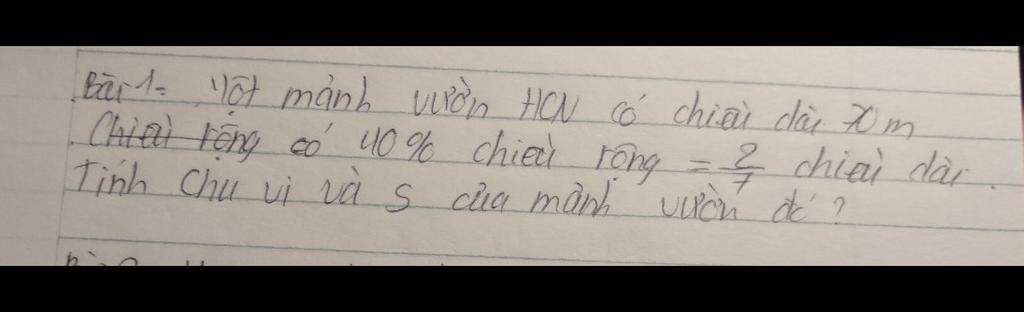 Bài 1: Một mảnh vườn HCN có chiều dài 70m
Chiều rộng có 40% chiều rộng = 2/7 chiều dài.
Tính chu vi và S của mảnh vườn đó?